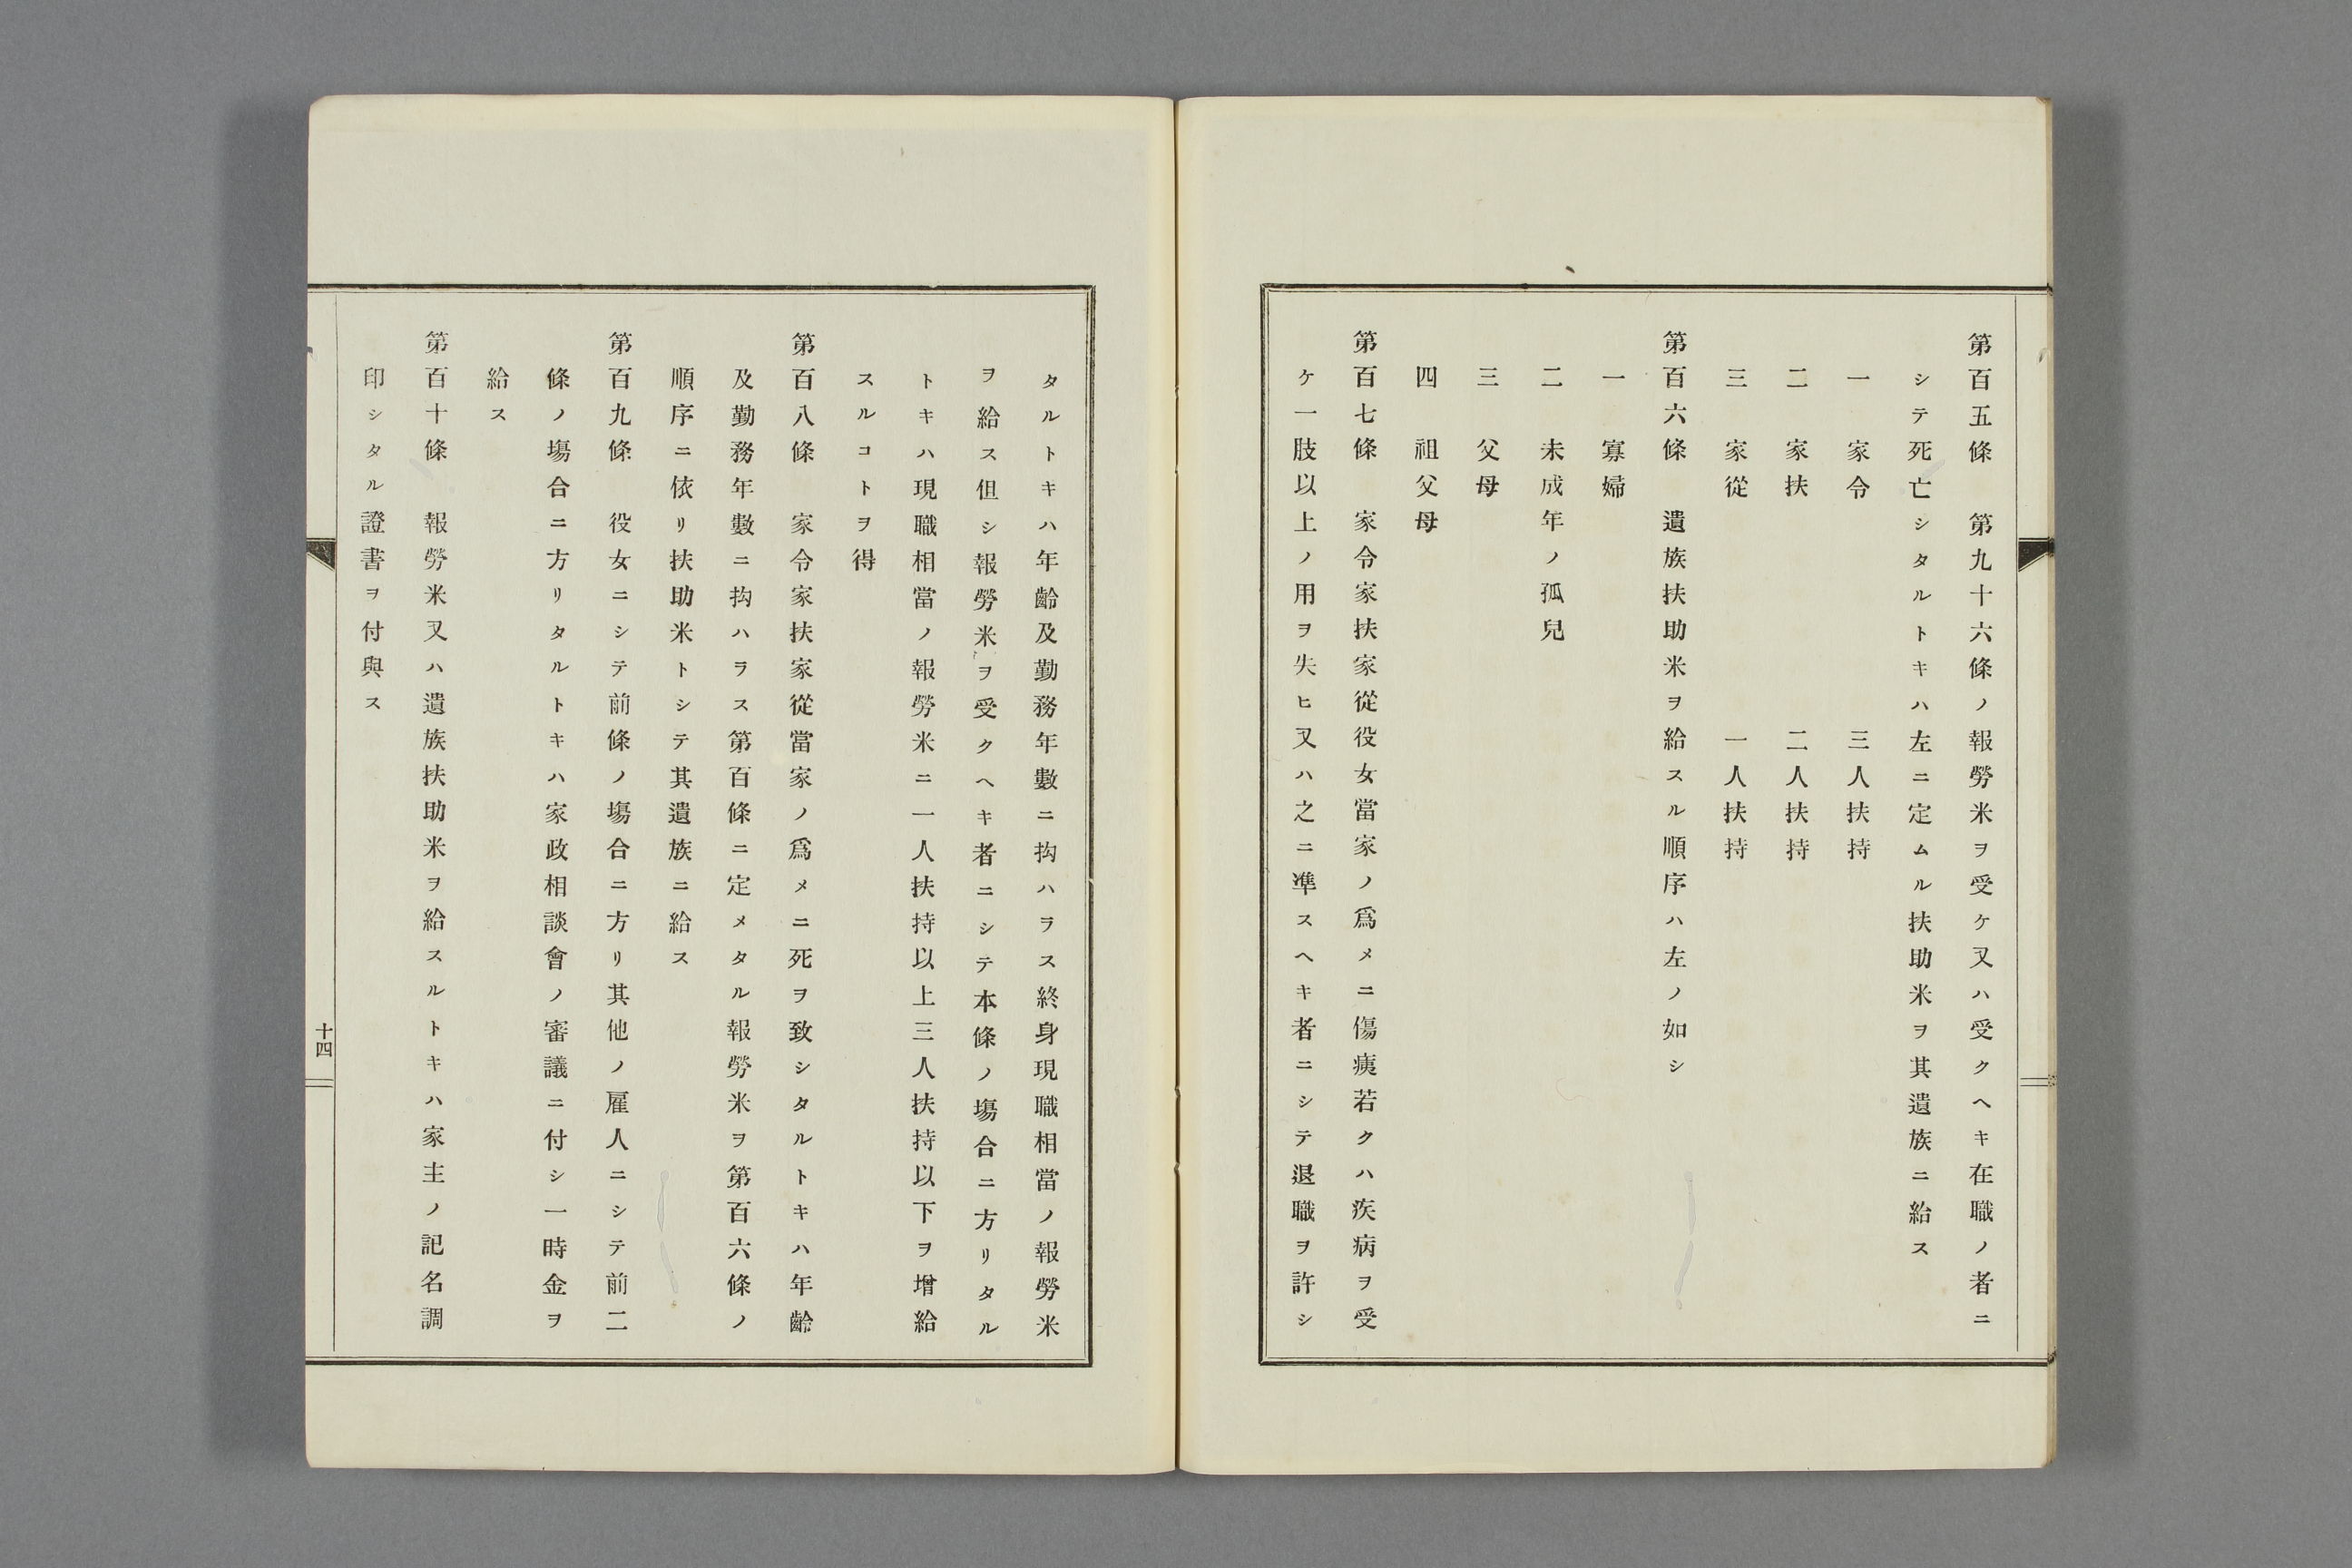 第百五條　第九十六條ノ報勞米ヲ受ケ又ハ受クヘキ在職ノ者ニ
シテ死亡シタルトキハ左ニ定ムル扶助米ヲ其遺族ニ給ス
一　家令　　　　　　三人扶持
二　家扶　　　　　　二人扶持
三　家從　　　　　　一人扶持
第百六條　遺族扶助米ヲ給スル順序ハ左ノ如シ
一　寡婦
二　未成年ノ孤兒
三　父母
四　祖父母
第百七條　家令家扶家從役女當家ノ爲メニ傷痍若クハ疾病ヲ受
ケ一肢以上ノ用ヲ失ヒ又ハ之ニ準スヘキ者ニシテ退職ヲ許シ
タルトキハ年齡及勤務年數ニ拘ハラス終身現職相當ノ報勞米
ヲ給ス但シ報勞米ヲ受クヘキ者ニシテ本條ノ塲合ニ方リタル
トキハ現職相當ノ報勞米ニ一人扶持以上三人扶持以下ヲ增給
スルコトヲ得
第百八條　家令家扶家從當家ノ爲メニ死ヲ致シタルトキハ年齡
及勤務年數ニ拘ハラス第百條ニ定メタル報勞米ヲ第百六條ノ
順序ニ依リ扶助米トシテ其遺族ニ給ス
第百九條　役女ニシテ前條ノ塲合ニ方リ其他ノ雇人ニシテ前二
條ノ塲合ニ方リタルトキハ家政相談會ノ審議ニ付シ一時金ヲ
給ス
第百十條　報勞米又ハ遺族扶助米ヲ給スルトキハ家主ノ記名調
印シタル證書ヲ付與ス
十四